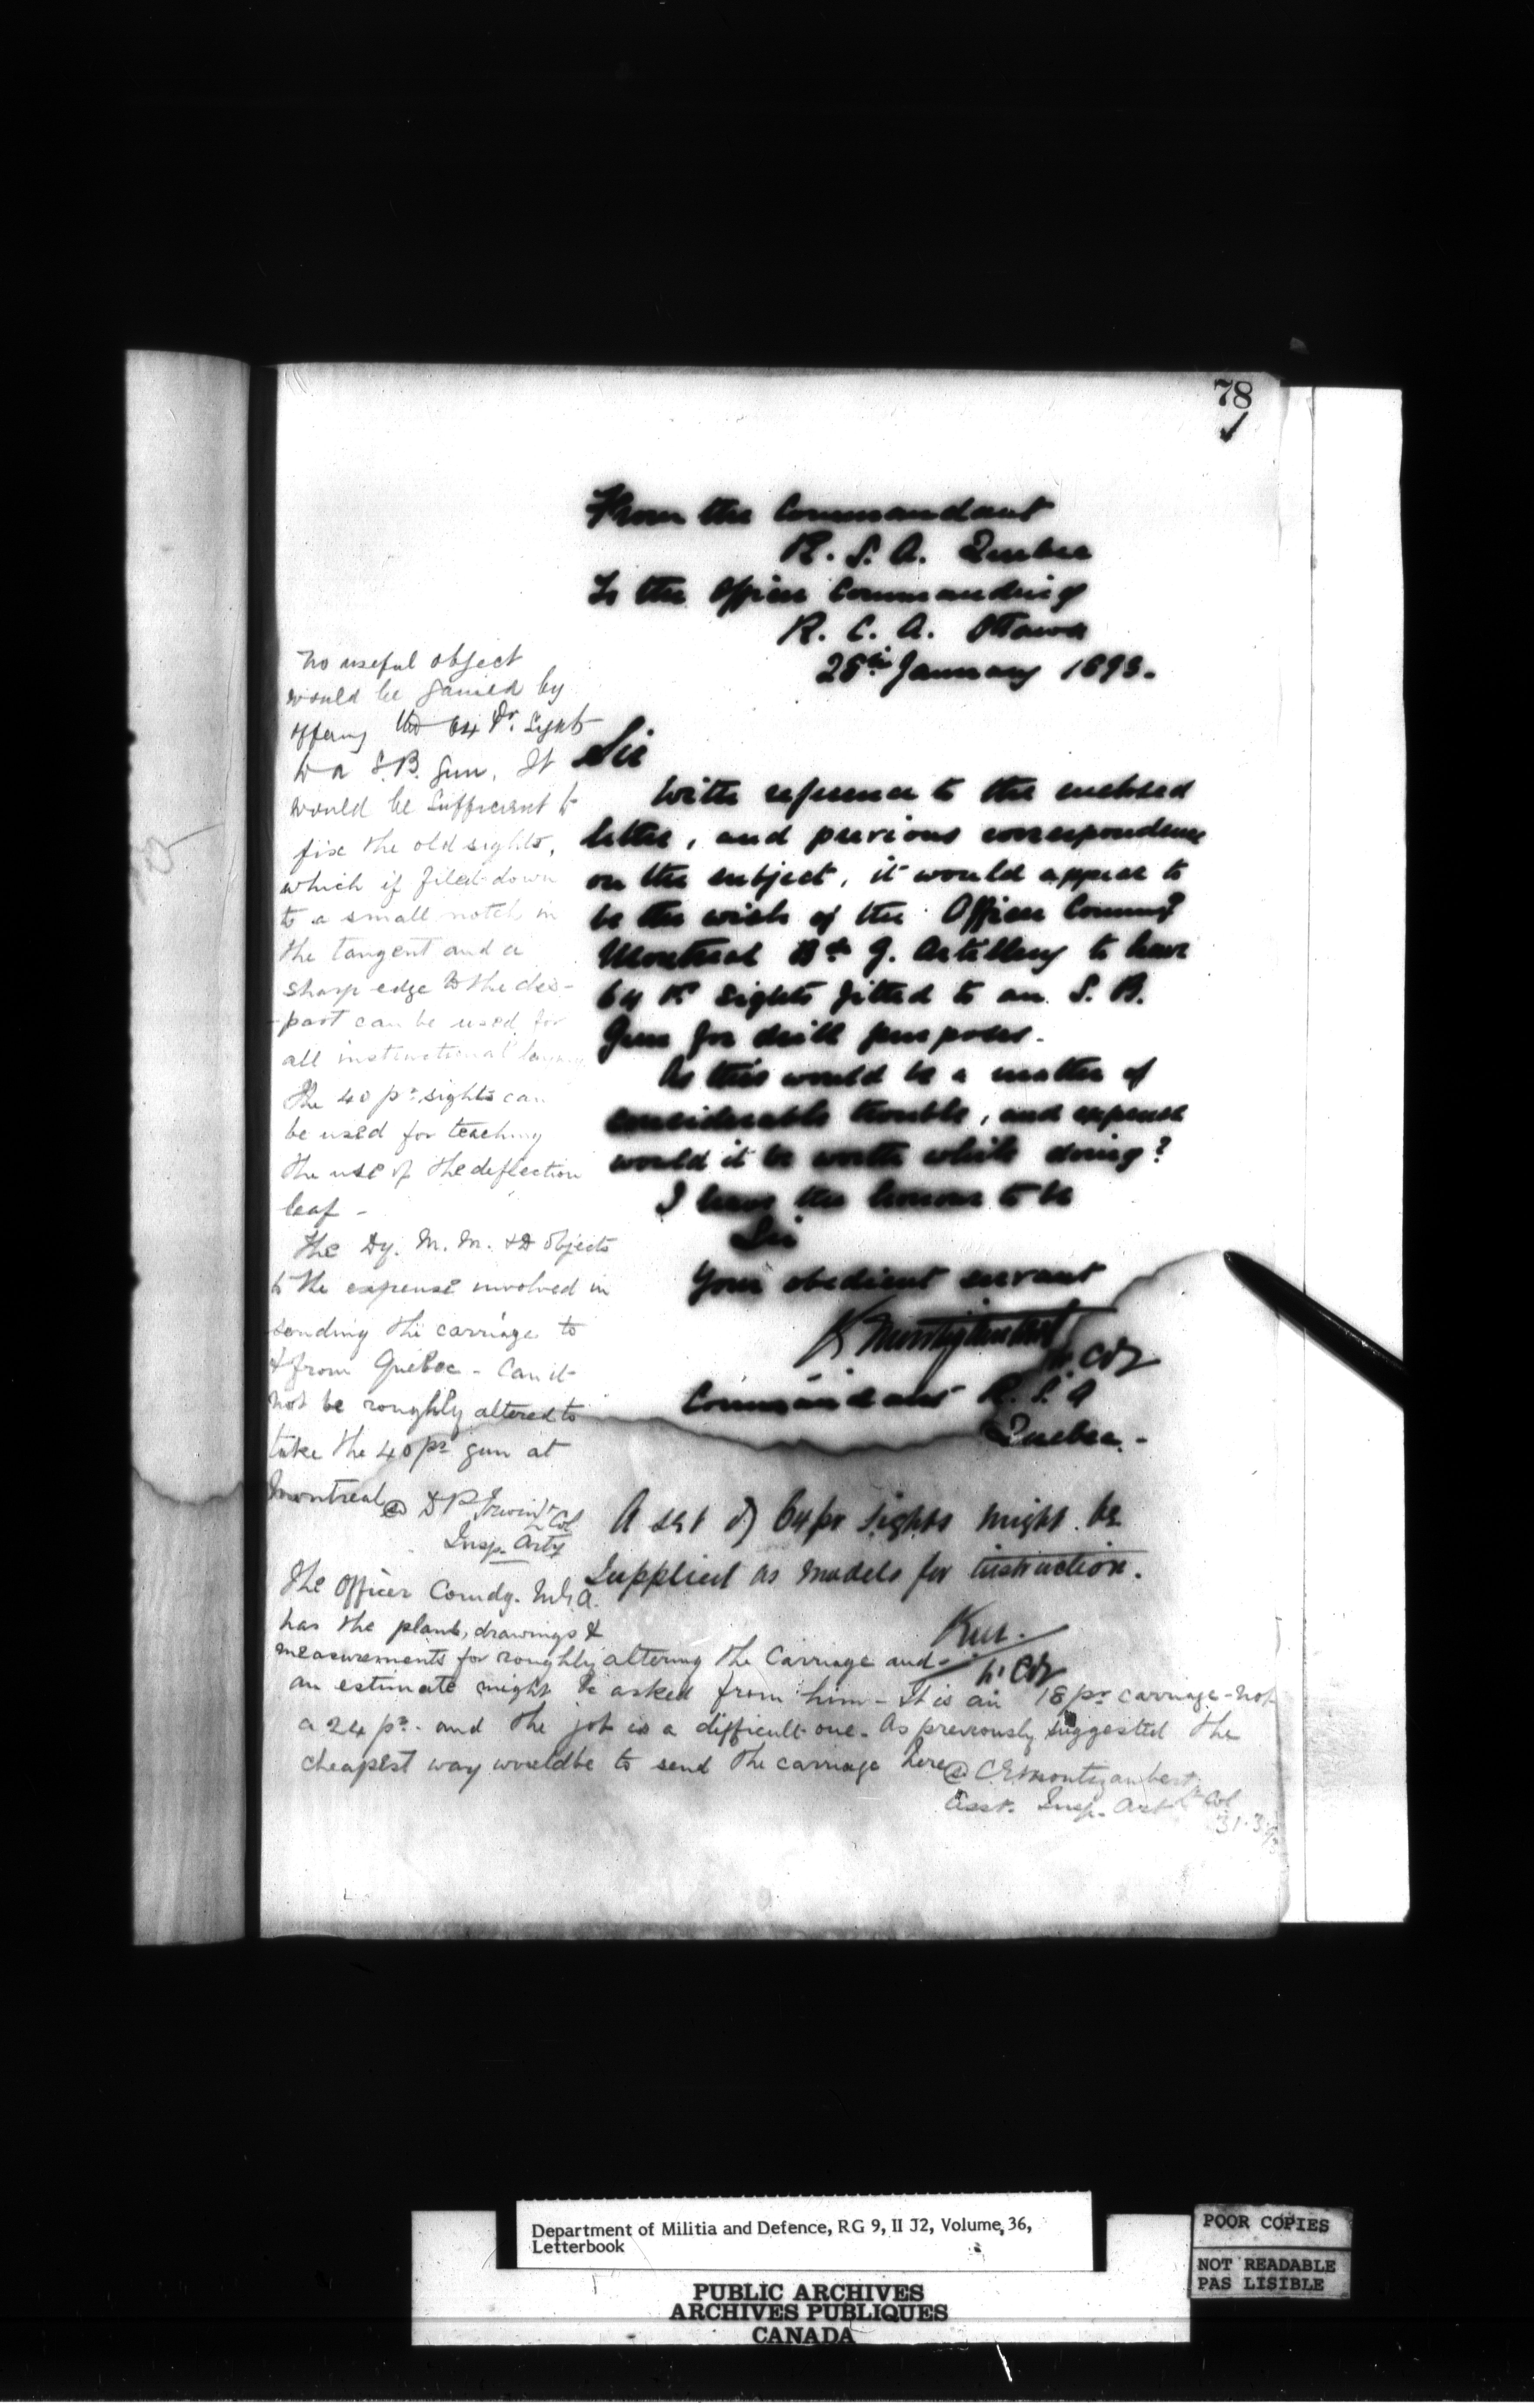 78
From the Commandant
R. S. A. Quebec
To the Officer Commanding
R. C. A. Ottawa
28th January 1893.
Sir
With reference to the enclosed
letter, and previous correspondence
on the subject, it would appear to
be the wish of the Officer Commg
Montreal Bde G. Artillery to have
64 Pr sights fitted to an S. B.
Gun for drill purposes.
As this would be a matter of
considerable trouble, and expense
would it be worth while doing?
I have the honour to be
Sir
Your obedient servant
Lt. Col
Commandant R. S. A
Quebec. -
A set of 64 pr sights might be
supplied as models for instruction.
Lt. Col
No useful object
would be gained by
64 Pr. Sights
to a S.B. Gun. It
would be sufficient to
fix the old sights,
which if filed down
to a small notch in
the tangent and a
sharp edge to the dis-
-part can be used for
all instructional laying
The 40 pr sights can
be used for teaching
the use of the deflection
leaf -
The Dy. M. M. & D objects
to the expense involved in
sending the carriage to
& from Quebec - Can it
not be roughly altered to
take the 40 pr gun at
Montreal D P Irwin Lt Col
Insp. Arty
The Officer Comdg. M.G.A.
has the plans, drawings &
measurements for roughly altering the Carriage and
an estimate might be asked from him - It is an 18 pr carriage - not
a 24 pr - and the job is a difficult one. As previously suggested the
cheapest way would be to send the carriage here C.E. Montizambert
Asst. Insp. Art Lt Col
31.3.93
Department of Militia and Defence, RG 9, II J2, Volume 36,
Letterbook
PUBLIC ARCHIVES
ARCHIVES PUBLIQUES
CANADA
POOR COPIES
NOT READABLE
PAS LISIBLE